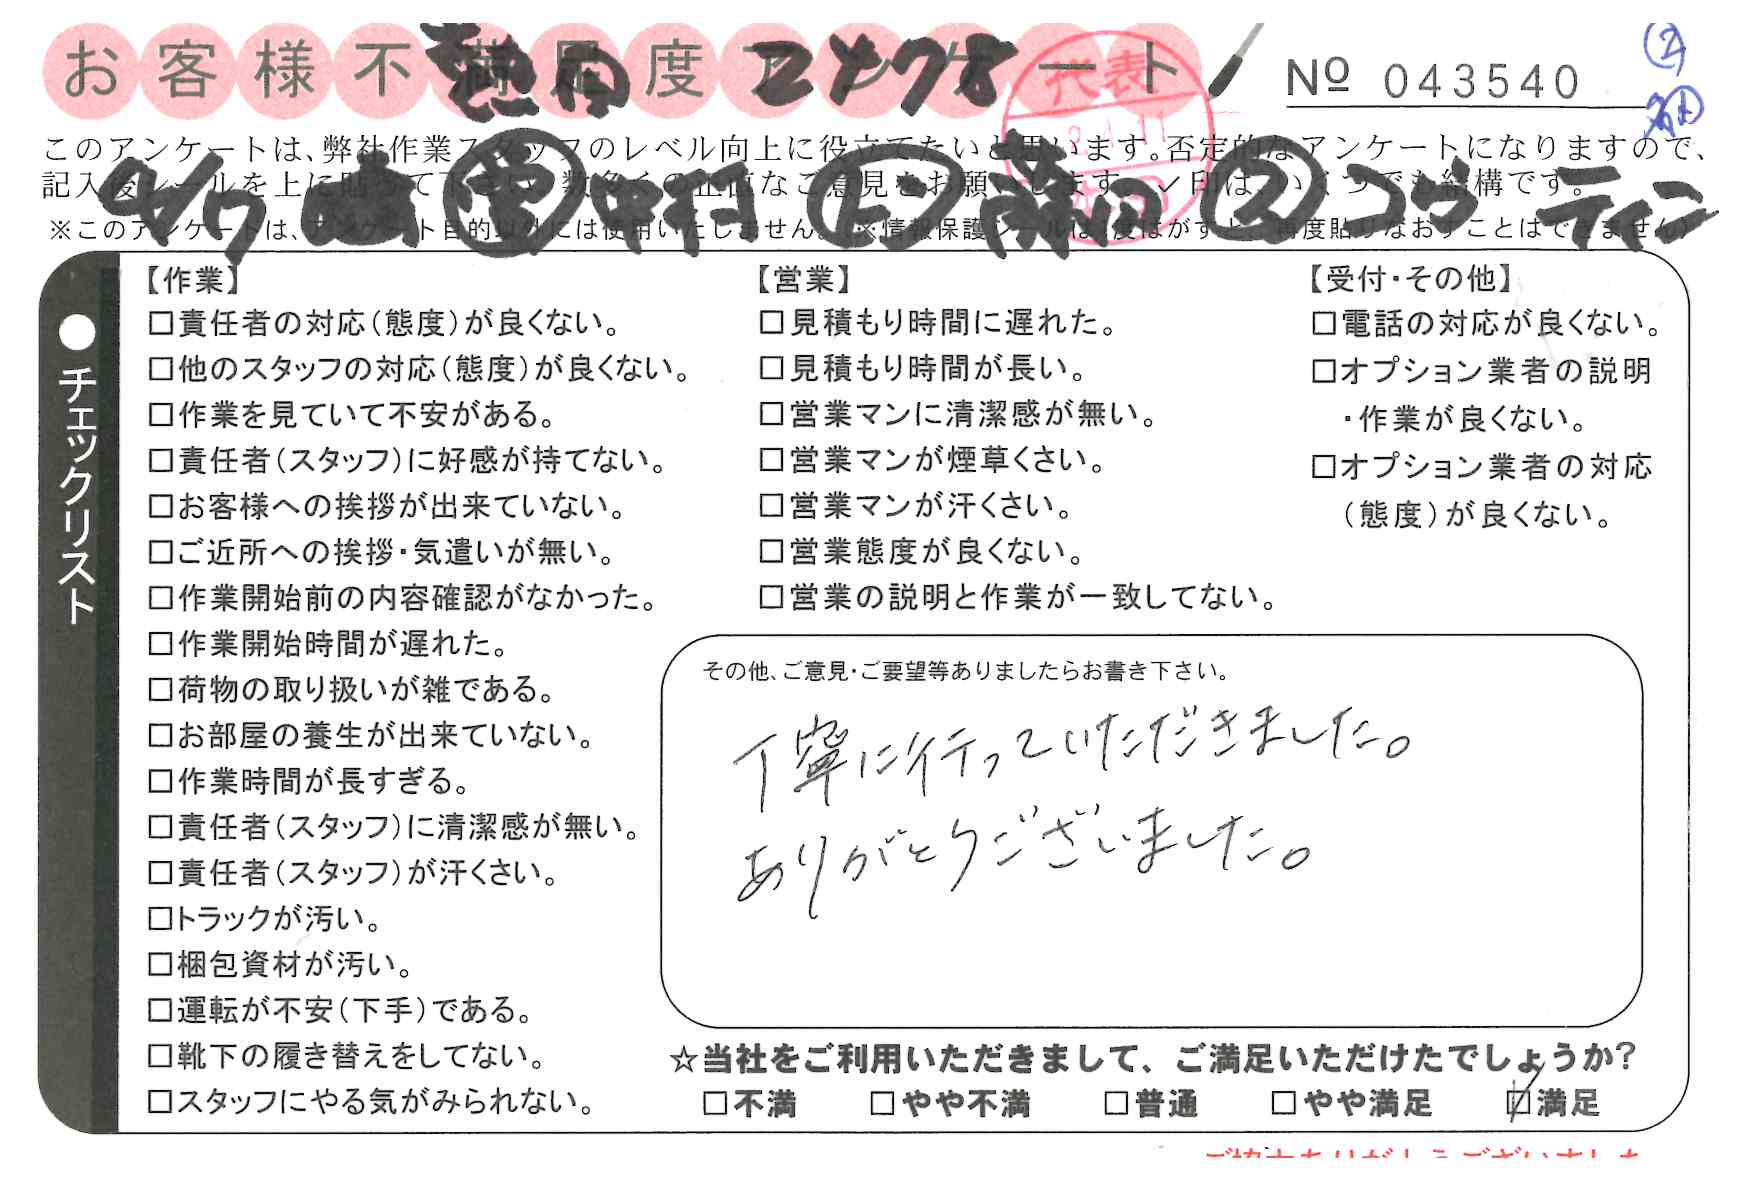 お客様不満足度アンケート
№ 043540
このアンケートは、弊社作業スタッフのレベル向上に役立てたいと思います。否定的なアンケートになりますので、
記入後シールを上に貼って下さい。数多くの正直なご意見をお願いします。✓印は、いくつでも結構です。
※このアンケートは、アンケート目的以外には使用いたしません。(※情報保護シールは1度はがすと、再度貼りなおすことはできません)
代表
4/7 中村 藤田 ス コウ ティン
●チェックリスト
【作業】
□責任者の対応(態度)が良くない。
□他のスタッフの対応(態度)が良くない。
□作業を見ていて不安がある。
□責任者(スタッフ)に好感が持てない。
□お客様への挨拶が出来ていない。
□ご近所への挨拶・気遣いが無い。
□作業開始前の内容確認がなかった。
□作業開始時間が遅れた。
□荷物の取り扱いが雑である。
□お部屋の養生が出来ていない。
□作業時間が長すぎる。
□責任者(スタッフ)に清潔感が無い。
□責任者(スタッフ)が汗くさい。
□トラックが汚い。
□梱包資材が汚い。
□運転が不安(下手)である。
□靴下の履き替えをしてない。
□スタッフにやる気がみられない。
【営業】
□見積もり時間に遅れた。
□見積もり時間が長い。
□営業マンに清潔感が無い。
□営業マンが煙草くさい。
□営業マンが汗くさい。
□営業態度が良くない。
□営業の説明と作業が一致してない。
【受付・その他】
□電話の対応が良くない。
□オプション業者の説明
・作業が良くない。
□オプション業者の対応
(態度)が良くない。
その他、ご意見・ご要望等ありましたらお書き下さい。
丁寧に行っていただきました。
ありがとうございました。
☆当社をご利用いただきまして、ご満足いただけたでしょうか?
□不満 □やや不満 □普通 □やや満足 ☑満足
ご協力ありがとうございました